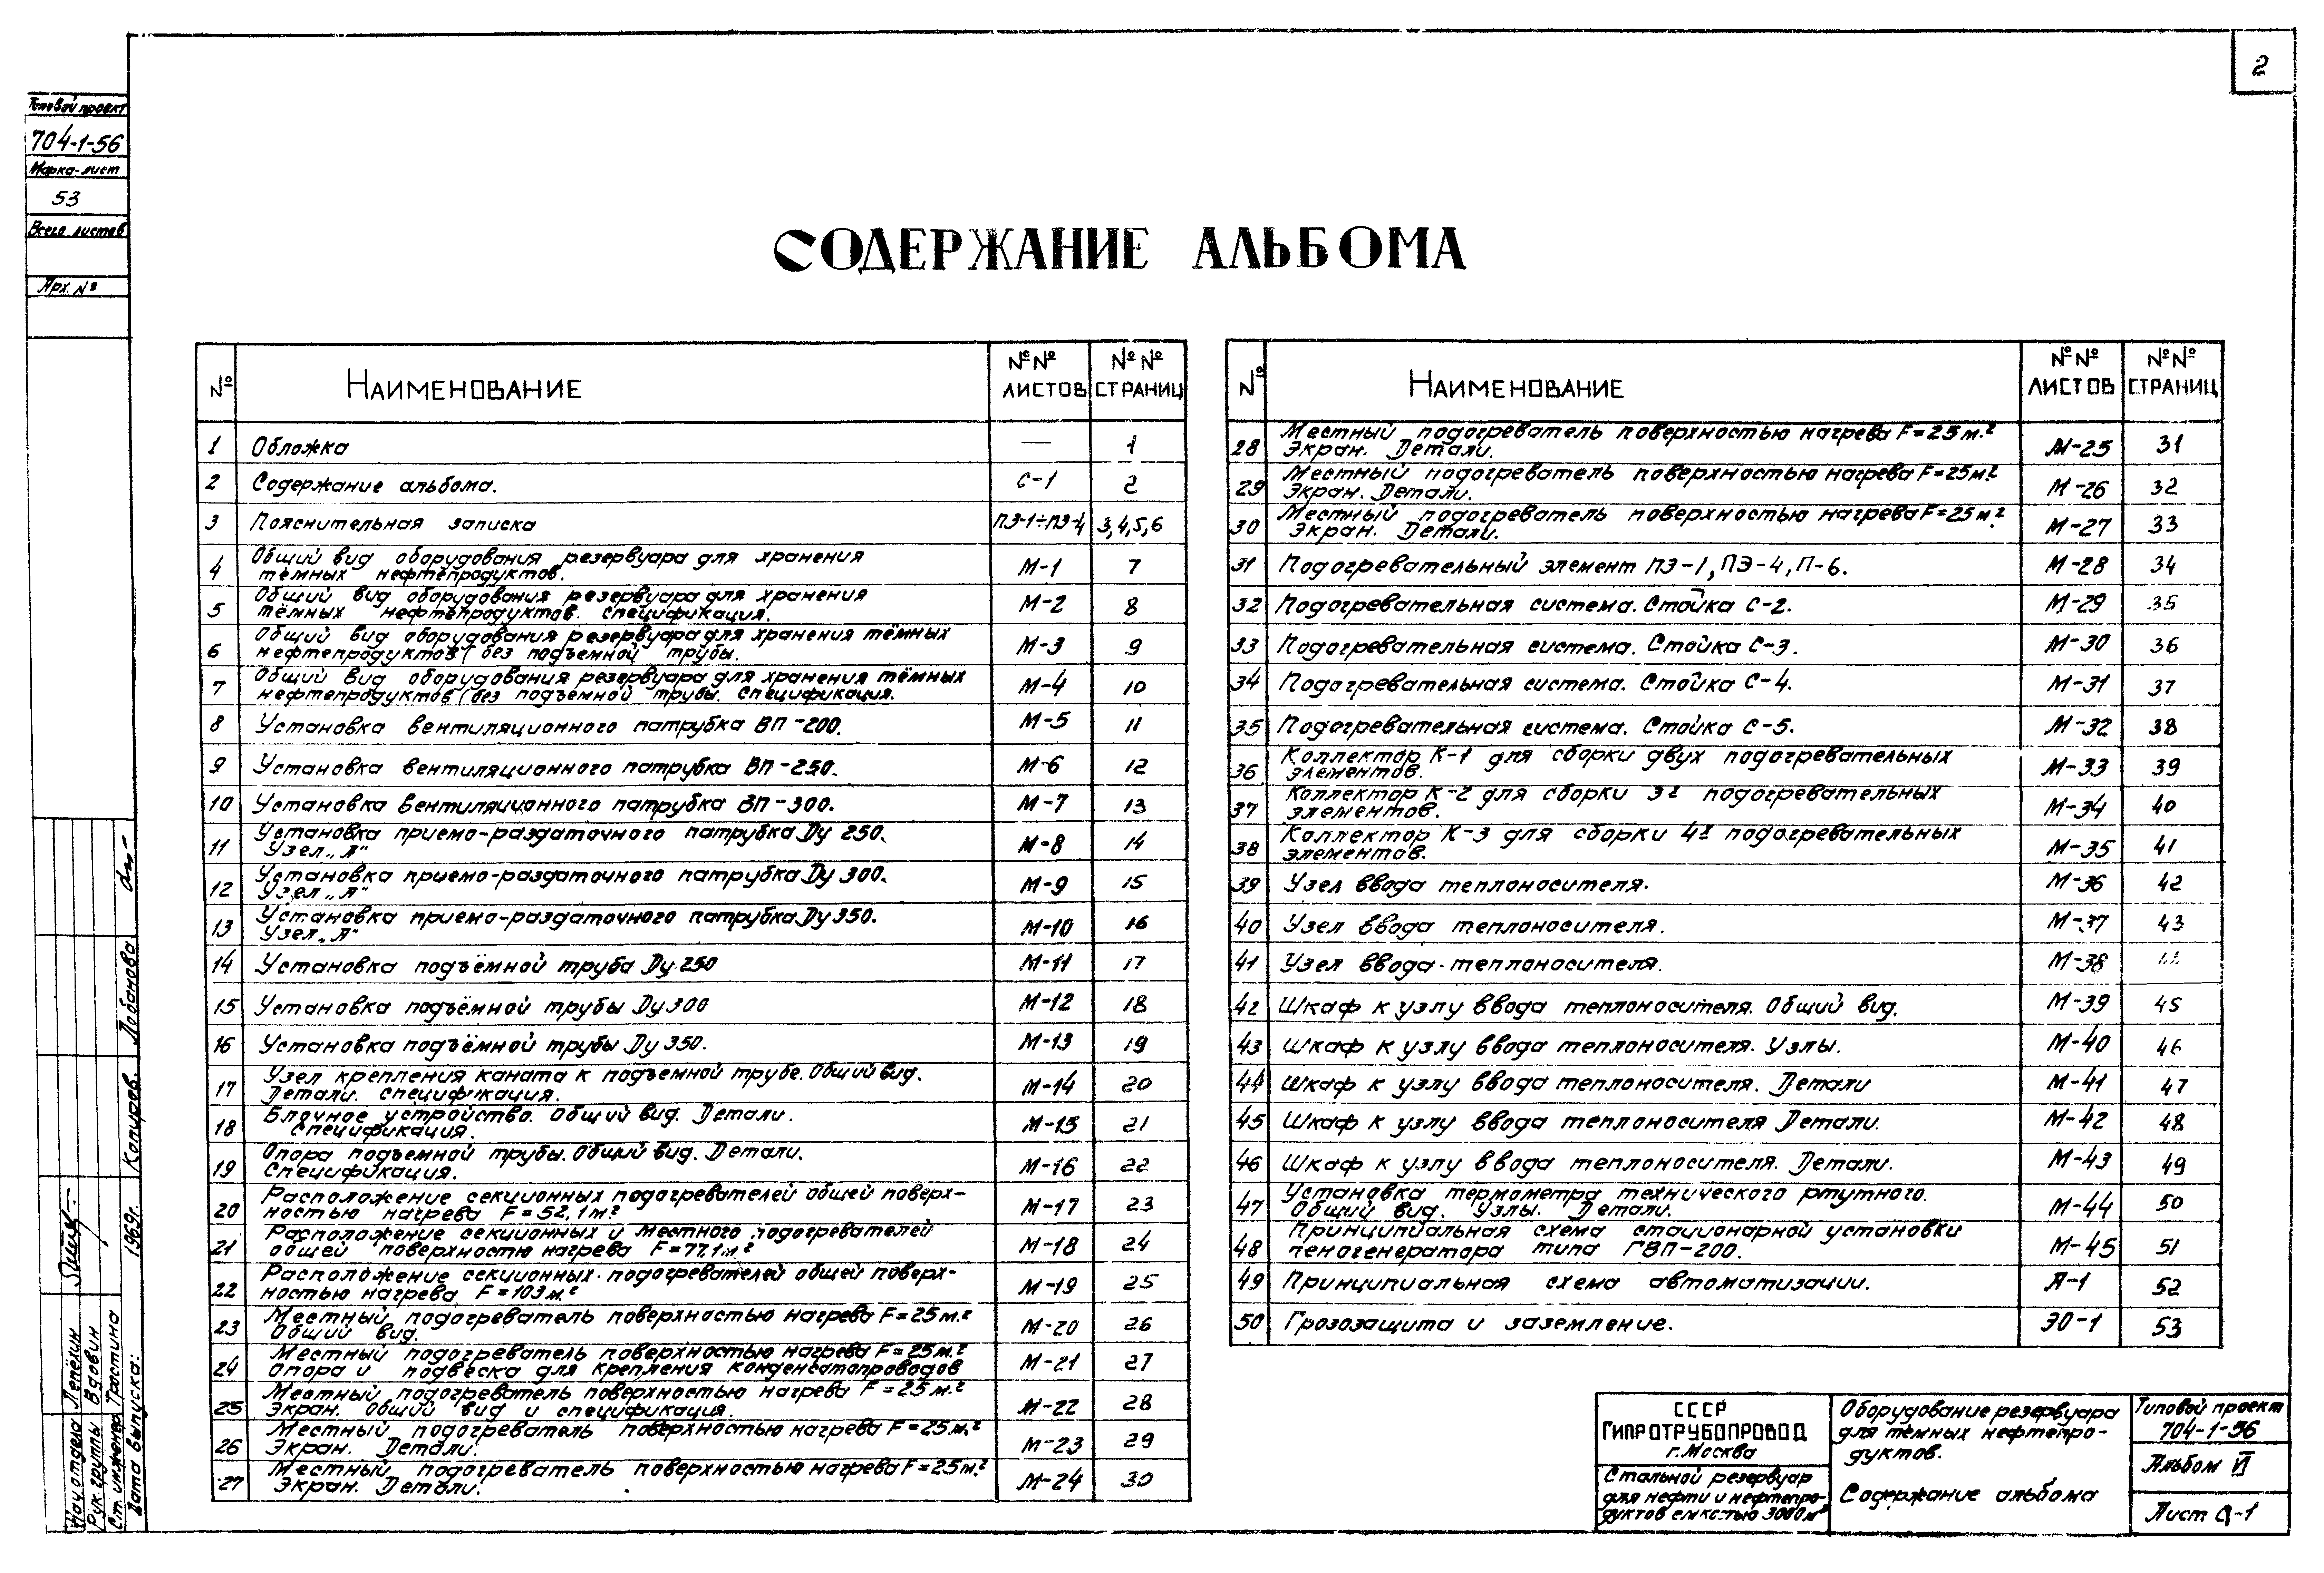 2
Типовой проект
704-1-56
Марка-лист
53
Всего листов
Арх. №
СОДЕРЖАНИЕ АЛЬБОМА
№ НАИМЕНОВАНИЕ №№ ЛИСТОВ №№ СТРАНИЦ
1 Обложка — 1
2 Содержание альбома. С-1 2
3 Пояснительная записка ПЗ-1÷ПЗ-4 3,4,5,6
4 Общий вид оборудования резервуара для хранения
тёмных нефтепродуктов. М-1 7
5 Общий вид оборудования резервуара для хранения
тёмных нефтепродуктов. Спецификация. М-2 8
6 Общий вид оборудования резервуара для хранения тёмных
нефтепродуктов (без подъемной трубы. М-3 9
7 Общий вид оборудования резервуара для хранения тёмных
нефтепродуктов (без подъёмной трубы. Спецификация. М-4 10
8 Установка вентиляционного патрубка ВП-200. М-5 11
9 Установка вентиляционного патрубка ВП-250. М-6 12
10 Установка вентиляционного патрубка ВП-300. М-7 13
11 Установка приемо-раздаточного патрубка Ду 250.
Узел „А" М-8 14
12 Установка приемо-раздаточного патрубка Ду 300.
Узел „А" М-9 15
13 Установка приемо-раздаточного патрубка Ду 350.
Узел „А" М-10 16
14 Установка подъёмной труба Ду 250 М-11 17
15 Установка подъёмной трубы Ду 300 М-12 18
16 Установка подъёмной трубы Ду 350. М-13 19
17 Узел крепления каната к подъемной трубе. Общий вид.
Детали. Спецификация. М-14 20
18 Блочное устройство. Общий вид. Детали.
Спецификация. М-15 21
19 Опора подъемной трубы. Общий вид. Детали.
Спецификация. М-16 22
20 Расположение секционных подогревателей общей поверх-
ностью нагрева F=52,1м² М-17 23
21 Расположение секционных и местного подогревателей
общей поверхностью нагрева F=77,1м² М-18 24
22 Расположение секционных подогревателей общей поверх-
ностью нагрева F=103м² М-19 25
23 Местный подогреватель поверхностью нагрева F=25м²
Общий вид. М-20 26
24 Местный подогреватель поверхностью нагрева F=25м²
Опора и подвеска для крепления конденсатопроводов М-21 27
25 Местный подогреватель поверхностью нагрева F=25м²
Экран. Общий вид и спецификация. М-22 28
26 Местный подогреватель поверхностью нагрева F=25м²
Экран. Детали. М-23 29
27 Местный подогреватель поверхностью нагрева F=25м²
Экран. Детали. М-24 30
№ НАИМЕНОВАНИЕ №№ ЛИСТОВ №№ СТРАНИЦ
28 Местный подогреватель поверхностью нагрева F=25м²
Экран. Детали. М-25 31
29 Местный подогреватель поверхностью нагрева F=25м²
Экран. Детали. М-26 32
30 Местный подогреватель поверхностью нагрева F=25м²
Экран. Детали. М-27 33
31 Подогревательный элемент ПЭ-1, ПЭ-4, П-6. М-28 34
32 Подогревательная система. Стойка С-2. М-29 35
33 Подогревательная система. Стойка С-3. М-30 36
34 Подогревательная система. Стойка С-4. М-31 37
35 Подогревательная система. Стойка С-5. М-32 38
36 Коллектор К-1 для сборки двух подогревательных
элементов. М-33 39
37 Коллектор К-2 для сборки 3х подогревательных
элементов. М-34 40
38 Коллектор К-3 для сборки 4х подогревательных
элементов. М-35 41
39 Узел ввода теплоносителя. М-36 42
40 Узел ввода теплоносителя. М-37 43
41 Узел ввода теплоносителя. М-38
42 Шкаф к узлу ввода теплоносителя. Общий вид. М-39 45
43 Шкаф к узлу ввода теплоносителя. Узлы. М-40 46
44 Шкаф к узлу ввода теплоносителя. Детали М-41 47
45 Шкаф к узлу ввода теплоносителя Детали. М-42 48
46 Шкаф к узлу ввода теплоносителя. Детали. М-43 49
47 Установка термометра технического ртутного.
Общий вид. Узлы. Детали. М-44 50
48 Принципиальная схема стационарной установки
пеногенератора типа ГВП-200. М-45 51
49 Принципиальная схема автоматизации. А-1 52
50 Грозозащита и заземление. ЭО-1 53
Нач. отдела Лепёхин
Рук. группы Вдовин
Ст. инженер Трастина
Дата выпуска: 1969г. Копиров. Лобанова
СССР
ГИПРОТРУБОПРОВОД
г. Москва
Стальной резервуар
для нефти и нефтепро-
дуктов емкостью 3000м³
Оборудование резервуара
для тёмных нефтепро-
дуктов.
Содержание альбома
Типовой проект
704-1-56
Альбом VI
Лист С-1